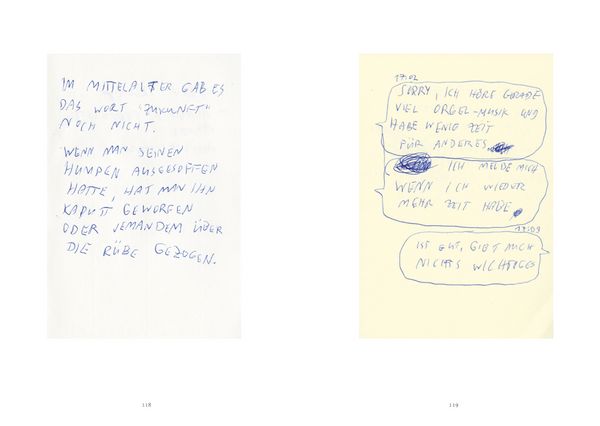 IM MITTELALTER GAB ES
DAS WORT "ZUKUNFT"
NOCH NICHT.
WENN MAN SEINEN
HUMPEN AUSGESOFFEN
HATTE, HAT MAN IHN
KAPUTT GEWORFEN
ODER JEMANDEM ÜBER
DIE RÜBE GEZOGEN.
118
17:02
SORRY, ICH HÖRE GERADE
VIEL ORGEL-MUSIK UND
HABE WENIG ZEIT
FÜR ANDERES
ICH MELDE MICH
WENN ICH WIEDER
MEHR ZEIT HABE
17:03
IST GUT, GIBT MICH
NICHTS WICHTIGES
119